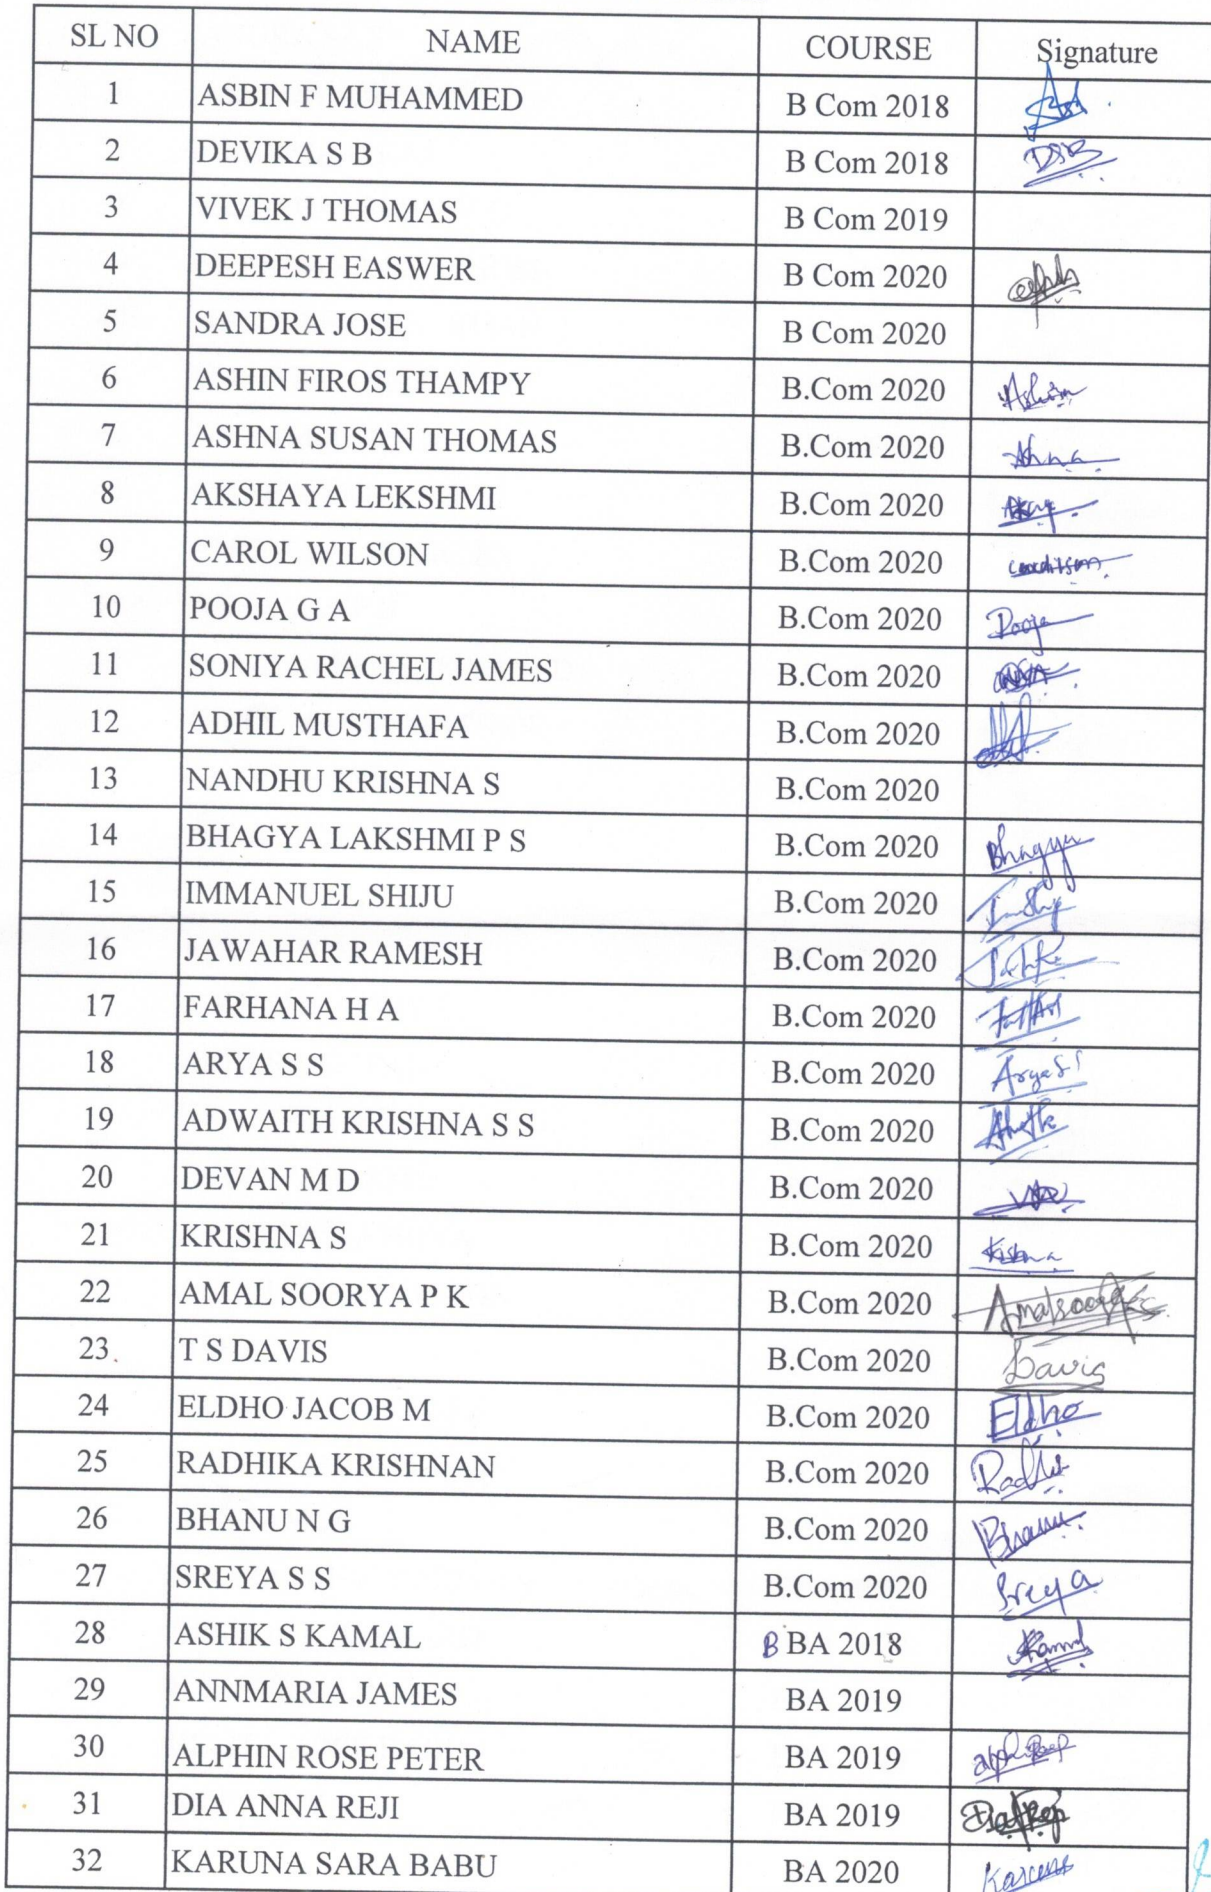 SL NO NAME COURSE Signature
1 ASBIN F MUHAMMED B Com 2018
2 DEVIKA S B B Com 2018 DSB
3 VIVEK J THOMAS B Com 2019
4 DEEPESH EASWER B Com 2020
5 SANDRA JOSE B Com 2020
6 ASHIN FIROS THAMPY B.Com 2020 Ashin
7 ASHNA SUSAN THOMAS B.Com 2020 Ashna
8 AKSHAYA LEKSHMI B.Com 2020
9 CAROL WILSON B.Com 2020
10 POOJA G A B.Com 2020 Pooja
11 SONIYA RACHEL JAMES B.Com 2020
12 ADHIL MUSTHAFA B.Com 2020
13 NANDHU KRISHNA S B.Com 2020
14 BHAGYA LAKSHMI P S B.Com 2020 Bhagya
15 IMMANUEL SHIJU B.Com 2020
16 JAWAHAR RAMESH B.Com 2020
17 FARHANA H A B.Com 2020
18 ARYA S S B.Com 2020 Arya S S
19 ADWAITH KRISHNA S S B.Com 2020
20 DEVAN M D B.Com 2020
21 KRISHNA S B.Com 2020 Krishna
22 AMAL SOORYA P K B.Com 2020 Amalsoorya
23 T S DAVIS B.Com 2020 Davis
24 ELDHO JACOB M B.Com 2020 Eldho
25 RADHIKA KRISHNAN B.Com 2020
26 BHANU N G B.Com 2020 Bhanu
27 SREYA S S B.Com 2020 Sreya
28 ASHIK S KAMAL B BA 2018 Kamal
29 ANNMARIA JAMES BA 2019
30 ALPHIN ROSE PETER BA 2019
31 DIA ANNA REJI BA 2019
32 KARUNA SARA BABU BA 2020